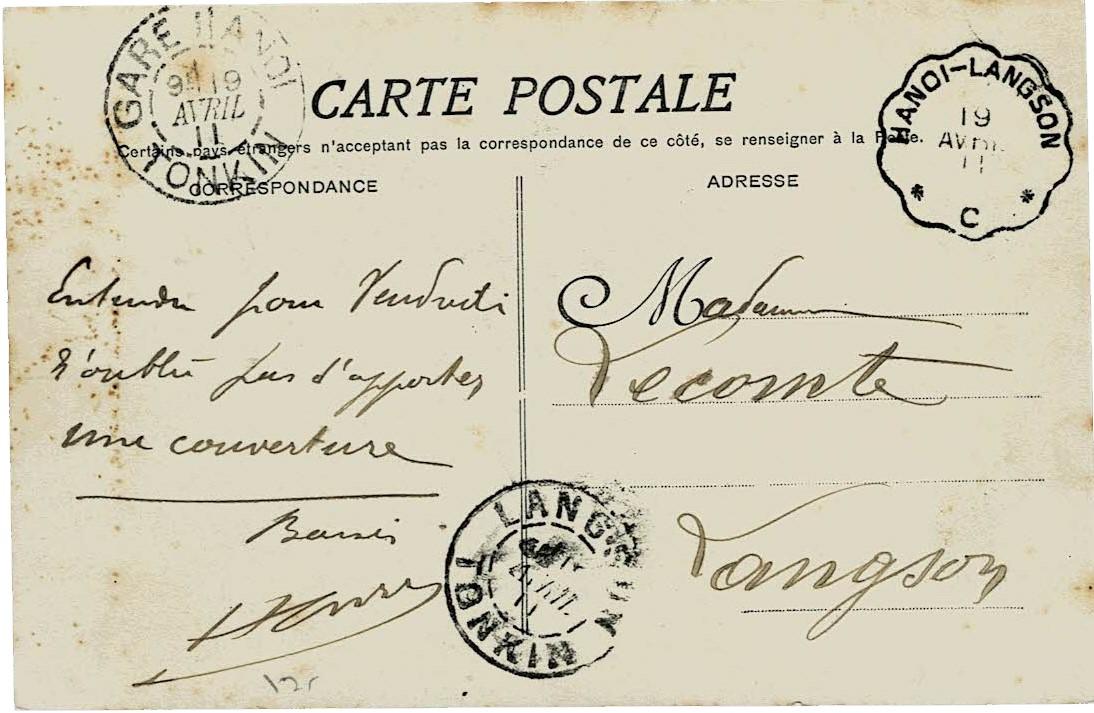 GARE HANOI
9 19
AVRIL
11
TONKIN
HANOI-LANGSON
19
AVRIL
11
* C *
CARTE POSTALE
Certains pays étrangers n'acceptant pas la correspondance de ce côté, se renseigner à la Poste.
CORRESPONDANCE
ADRESSE
Entendu pour Vendredi
N'oublie pas d'apporter
une couverture
Baisers
Madame
Lecomte
Langson
LANGSON
AVRIL
11
TONKIN